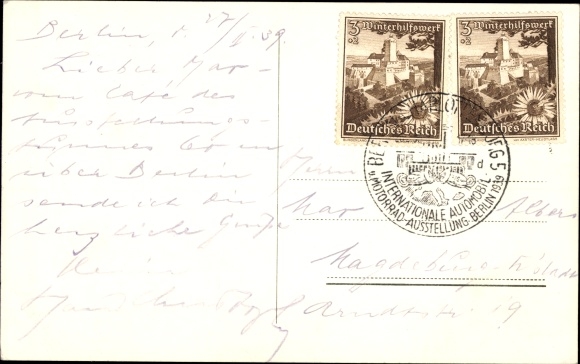 Berlin, d. 27/II 39.
Lieber Max
vom Café des
Ausstellungs-
turmes
über Berlin
sende ich Dir
herzliche Grüße
3 Winterhilfswerk
+2
Deutsches Reich
3 Winterhilfswerk
+2
Deutsches Reich
BERLIN-CHARLOTTENBURG 5
d
INTERNATIONALE AUTOMOBIL-
u. MOTORRAD-AUSSTELLUNG BERLIN 1939
Herrn
Max Albers
Magdeburg
Arndtstr. 19